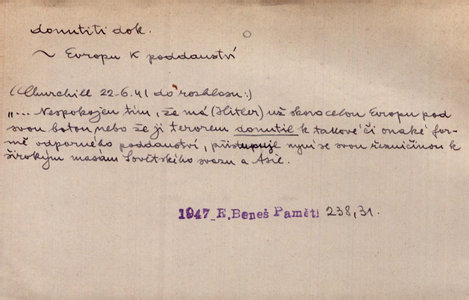 donutiti dok.
~ Evropu k poddanství
(Churchill 22-6.41 do rozhlasu:)
"... Nespokojen tím, že má (Hitler) už skoro celou Evropu pod
svou botou, nebo že ji terorem donutil k takové či onaké for-
mě odporného poddanství, přistupuje nyní se svou řezničinou k
širokým masám Sovětského svazu a Asie.
1947 E. Beneš Paměti 238,31.